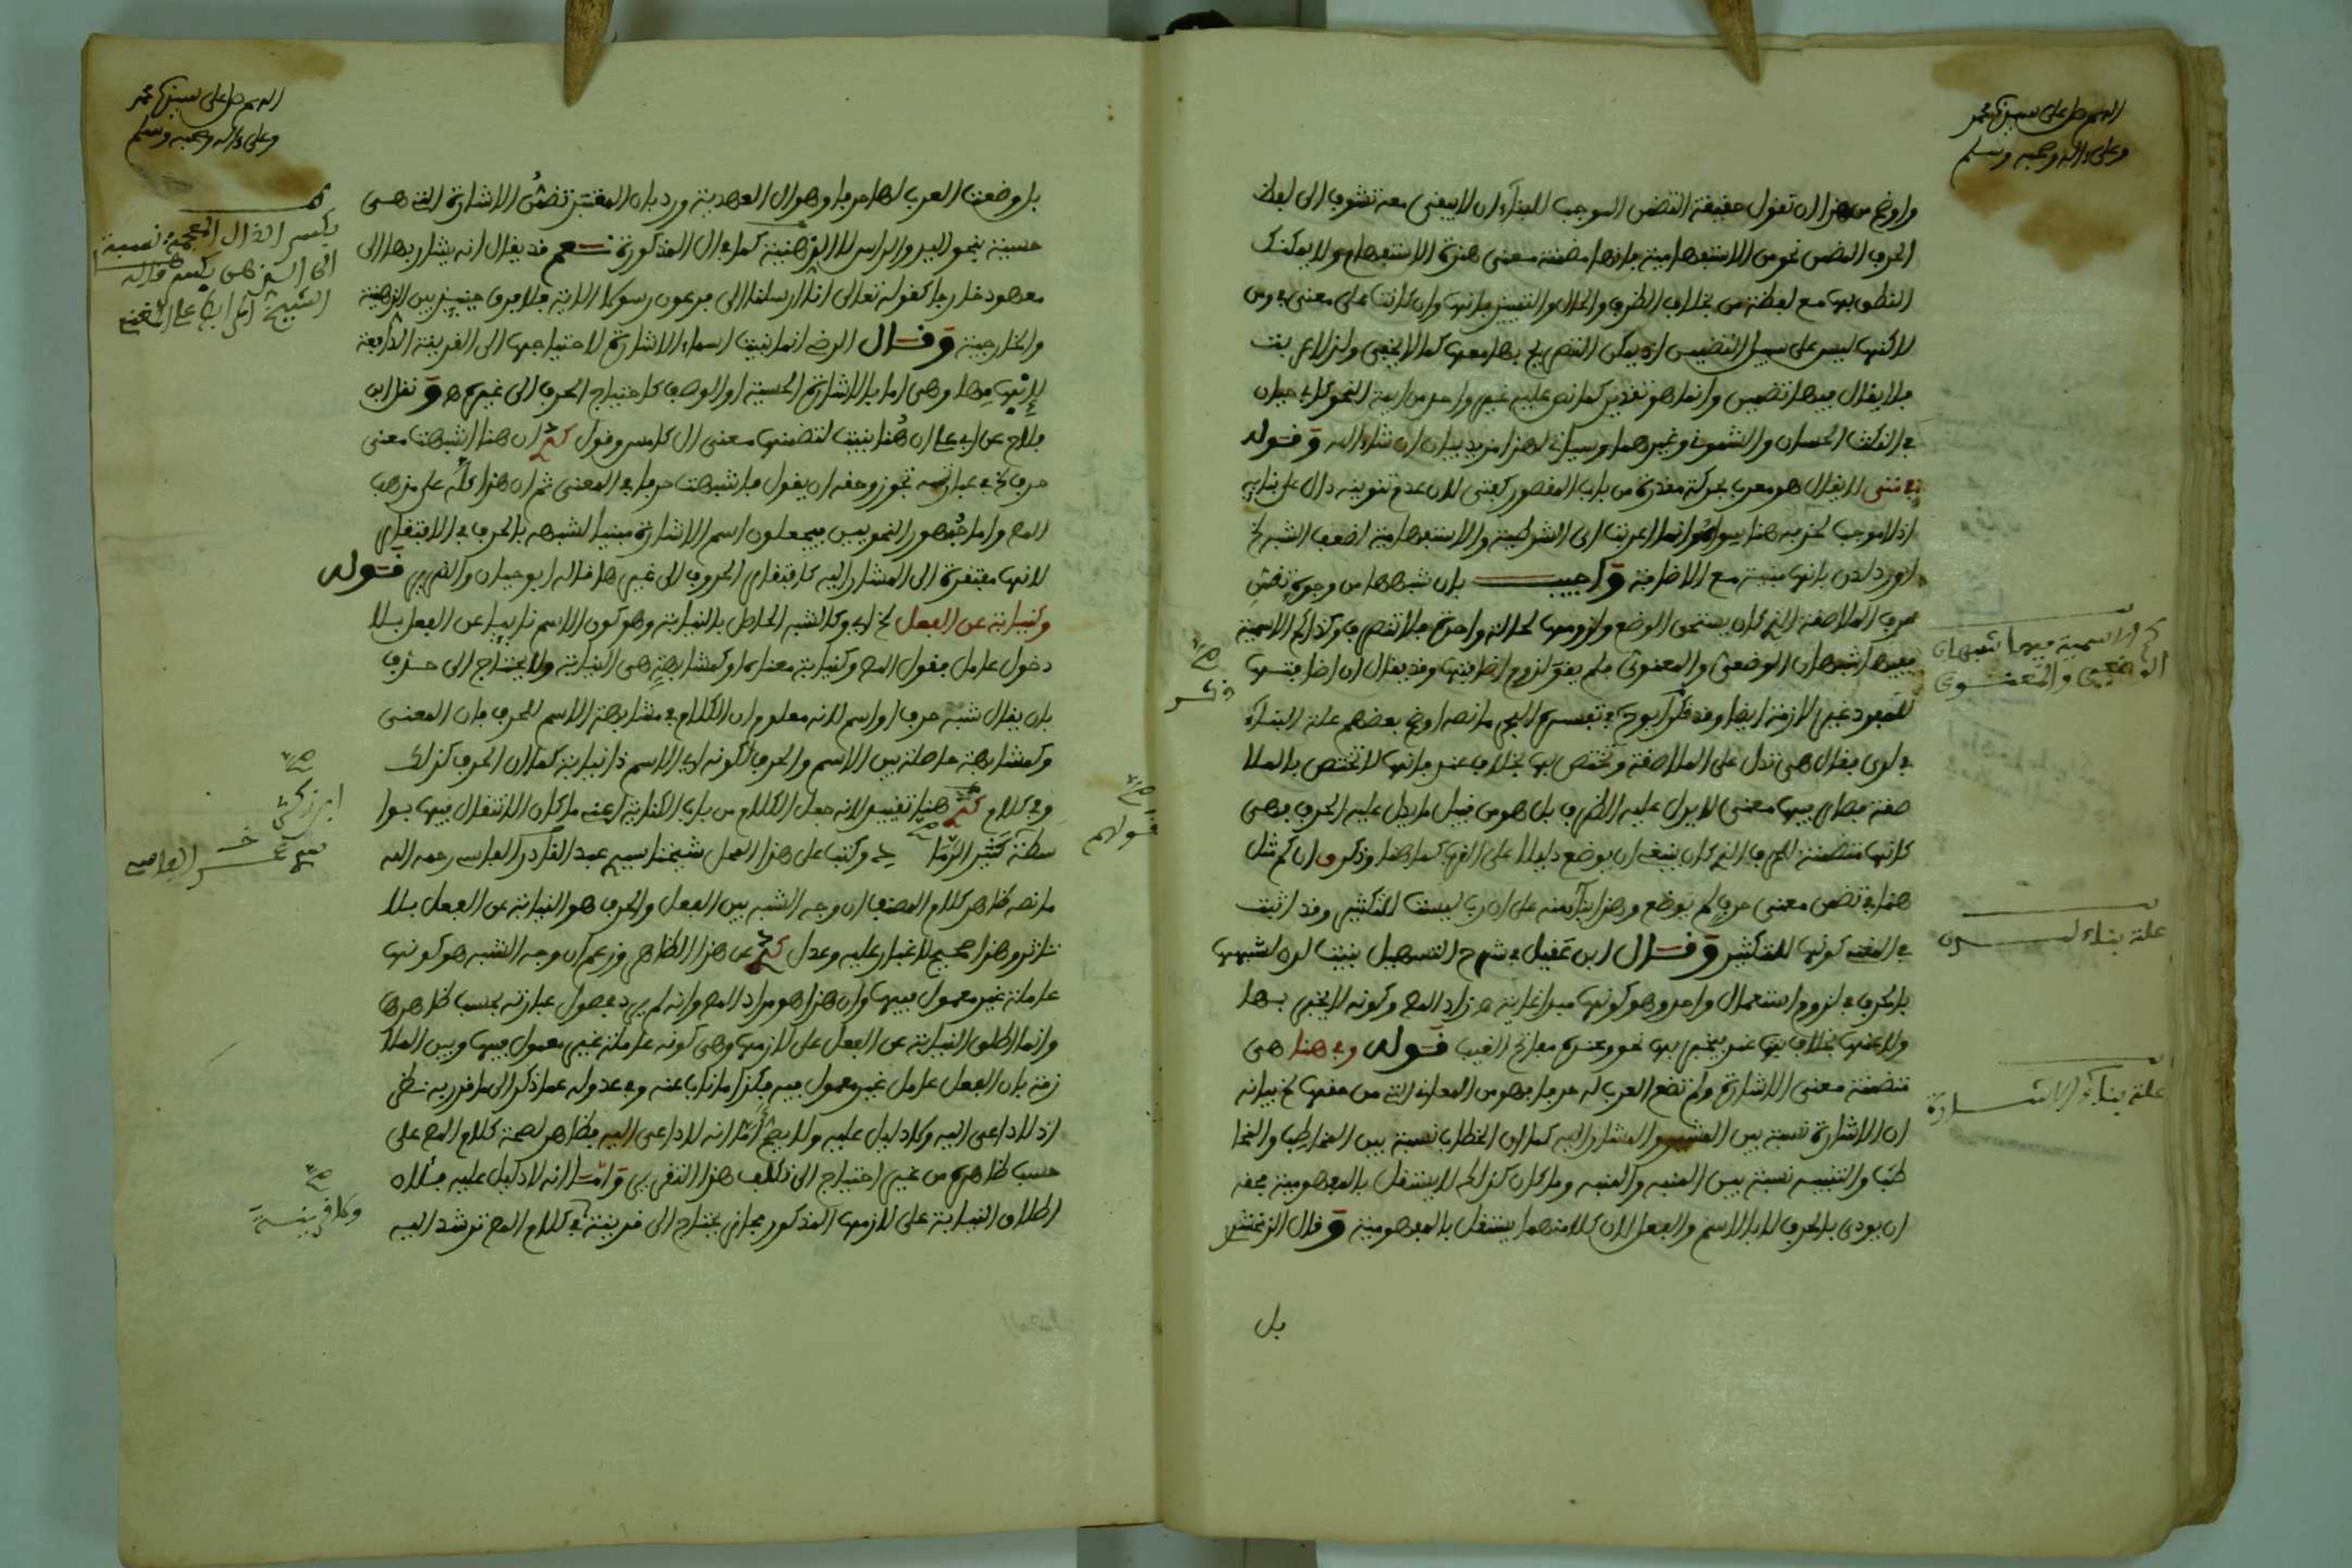 اللهم صل على سيدنا محمد
وعلى ءاله وصحبه وسلم
واوضح من هذا ان تقول حقيقة التضمن الموجب للبناء ان لا يبقى معه تشوف الى لفظ
الحرف المضمن نحو من الاستفهامية فانها مضمنة معنى همزة الاستفهام ولا يمكنك
النطق بها مع لفظة من بخلاف الظرف والحال والتمييز فانها وان كانت على معنى في ومن
لاكنها ليس على سبيل التضمين اذ يمكن التصريح بها معها كما لا يخفى ولذا اعربت
فلا يقال فيها تضمين وانما هو تقدير كما نص عليه غير واحد من ايمة النحو كابي حيان
في النكت الحسان والشموني وغيرهما وسياتي لهذا مزيد بيان ان شاء الله وقوله
في متى لا يقال هو معرب بحركة مقدرة من باب المقصور كفتى لان عدم تنوينه دال على بنايه
اذ لا موجب لحذفه هنا سواه وانما اعربت اي الشرطية والاستفهامية لضعف الشبه الخ
اورد لدن بانها مبنية مع الاضافة واجيب بان شبهها من وجوه تضمن
حرف الملاصقة الذي كان يستحق الوضع ولزومها لحالة واحدة فلا تتصرف وكذا كم الاسمية
ففيها الشبهان الوضعي والمعنوي فلم يقو لزوم اضافتها وقد يقال ان اضافتها
للمفرد غير لازمة ايضا وقد ذكر ابو ح في تفسيره البحر ما نصه اوضح بعضهم علة البناء
في لدن فقال هي تدل على الملاصقة وتختص بها بخلاف عند فانها لا تختص بالملا
صقة فصار فيها معنى لا يدل عليه الظرف بل هو من قبيل ما يدل عليه الحرف فهي
كانها متضمنة للحرف الذي كان ينبغي ان يوضع دليلا على القرب كما هنا وذكروا ان كم مثل
هنا في تضمن معنى حرف لم يوضع وهذا بناء منه على ان رب ليست للتكثير وقد اثبت
في المغني كونها للتكثير وقال ابن عقيل في شرح التسهيل بنيت لدن لشبهها
بالحرف في لزوم استعمال واحد وهو كونها مبدا غاية زاد المص وكونه لا يخبر بها
ولا عنها بخلاف عند يخبر بها نحو وعنده مفاتح الغيب قوله وفي هنا هي
متضمنة معنى الاشارة ولم تضع العرب له حرفا فهو من المعاني التي من حقها الخ بيانه
ان الاشارة نسبة بين المشير والمشار اليه كما ان الخطاب نسبة بين المخاطب والمخا
طب والتنبيه نسبة بين المنبه والمنبه وما كان كذلك لا يستقل بالمفهومية فحقه
ان يودى بالحرف لا بالاسم والفعل لان كلا منهما يستقل بالمفهومية وقال الزمخشر
بل
كم الاسمية فيها الشبهان
الوضعي والمعنوي
علة بناء لدن
علة بناء الاشارة
صح
ذكر
اللهم صل على سيدنا محمد
وعلى ءاله وصحبه وسلم
بل وضعت العرب لها حرفا وهو ال العهدية ورد بان المعتبر تضمن الاشارة التي هي
حسية نحو اليد والراس لا الذهنية كما في ال المذكورة نعم قد يقال انه يشار بها الى
معهود خارجا كقوله تعالى انا ارسلنا الى فرعون رسولا الاية فلا فرق حينئذ بين الذهنية
والخارجية وقال الرضي انما بنيت اسماء الاشارة لاحتياجها الى القرينة الرافعة
لابهامها وهي اما الاشارة الحسية او الوصف كاحتياج الحرف الى غيره ونقل ابن
فلاح عن ابي علي ان هنا بنيت لتضمنها معنى ال كامس وقول ان هنا اشبهت معنى
حرف الخ في عبارته تجوز وحقه ان يقول فاشبهت حرفا في المعنى ثم ان هذا كله على مذهب
المص واما جمهور النحويين فيجعلون اسم الاشارة مبنيا لشبهه بالحرف في الافتقار
لانها مفتقرة الى المشار اليه كافتقار الحروف الى غيرها قاله ابو حيان والغير قوله
وكنيابة عن الفعل الخ اي وكالشبه الحاصل بالنيابة وهو كون الاسم نايبا عن الفعل بلا
دخول عامل فقول المص وكنيابة معناه او كمشابهة هي النيابة ولا يحتاج الى حذف
بان يقال شبه حرف او اسم لانه معلوم ان الكلام في مشابهة الاسم للحرف فان المعنى
وكمشابهة حاصلة بين الاسم والحرف لكونه اي الاسم ذا نيابة كما ان الحرف كذلك
وفي كلام هنا تفسير لانه جعل الكلام من باب الكناية عنه ما كان الانتقال فيها بوا
سطة كثير الرماد وكتب على هذا المحل شيخنا سيدي عبد القادر الفاسي رحمه الله
ما نصه ظاهر كلام المصنف ان وجه الشبه بين الفعل والحرف هو النيابة عن الفعل بلا
تاثر وهذا صحيح لا غبار عليه وعدل عن هذا الظاهر وزعم ان وجه الشبه هو كونها
عاملة غير معمول فيها وان هذا هو مراد المص وانه لم يرد مدلول عبارته بحسب ظاهرها
وانما اطلق النيابة عن الفعل على لازمها وهي كونه عاملة غير معمول فيها وبين الملا
زمة بان الفعل عامل غير معمول فيه فكذا ما ناب عنه وفي عدوله عما ذكر الى ما قرر به نظر
اذ لا داعي اليه ولا دليل عليه ولا يصح اما انه لا داعي اليه فظاهر لصحة كلام المص على
حسب ظاهره من غير احتياج الى تكلف هذا التقرير واما انه لا دليل عليه فلان
اطلاق النيابة على لازمها المذكور مجاز يحتاج الى قرينة في كلام المص ترشد اليه
بكسر الذال المعجمة نسبة
الى الذهن بكسر قاله
صح
ابن زكري
صح
ولا قرينة